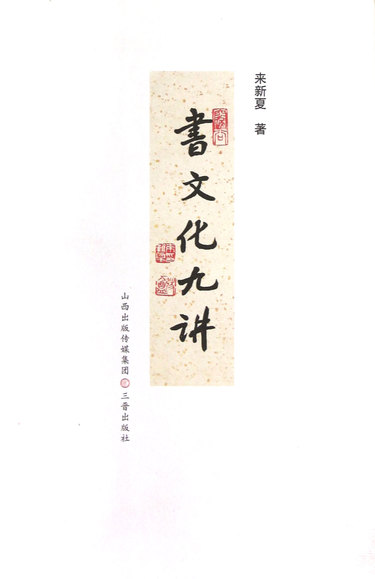 来新夏 著
书文化九讲
山西出版传媒集团 三晋出版社